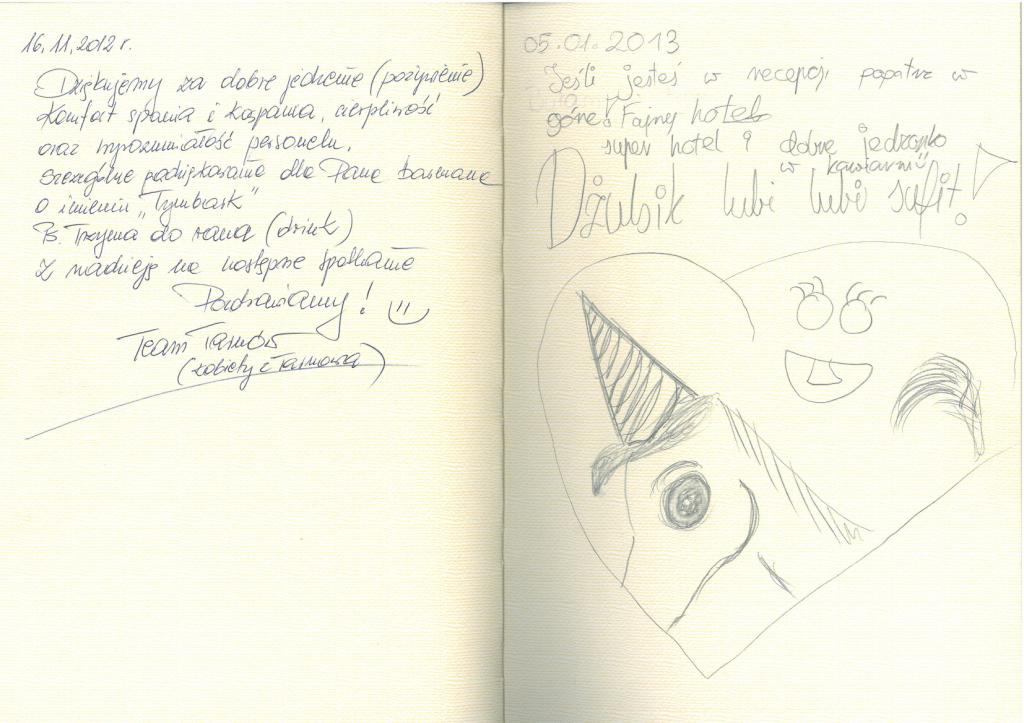 16.11.2012 r.
Dziękujemy za dobre jedzenie (pożywienie)
Komfort spania i kąpania, cierpliwość
oraz wyrozumiałość personelu,
szczególne podziękowania dla Pana barmana
o imieniu „Tymbark"
Ps. Trzyma do rana (drink)
Z nadzieją na następne spotkanie
Pozdrawiamy!
Team Tarnów
(kobiety z Tarnowa)
05.01.2013
Jeśli jesteś w recepcji popatrz w
górę! Fajnej hotel
super hotel i dobre jedzonko
w kawiarni
Dżulsik lubi lubi sufit!